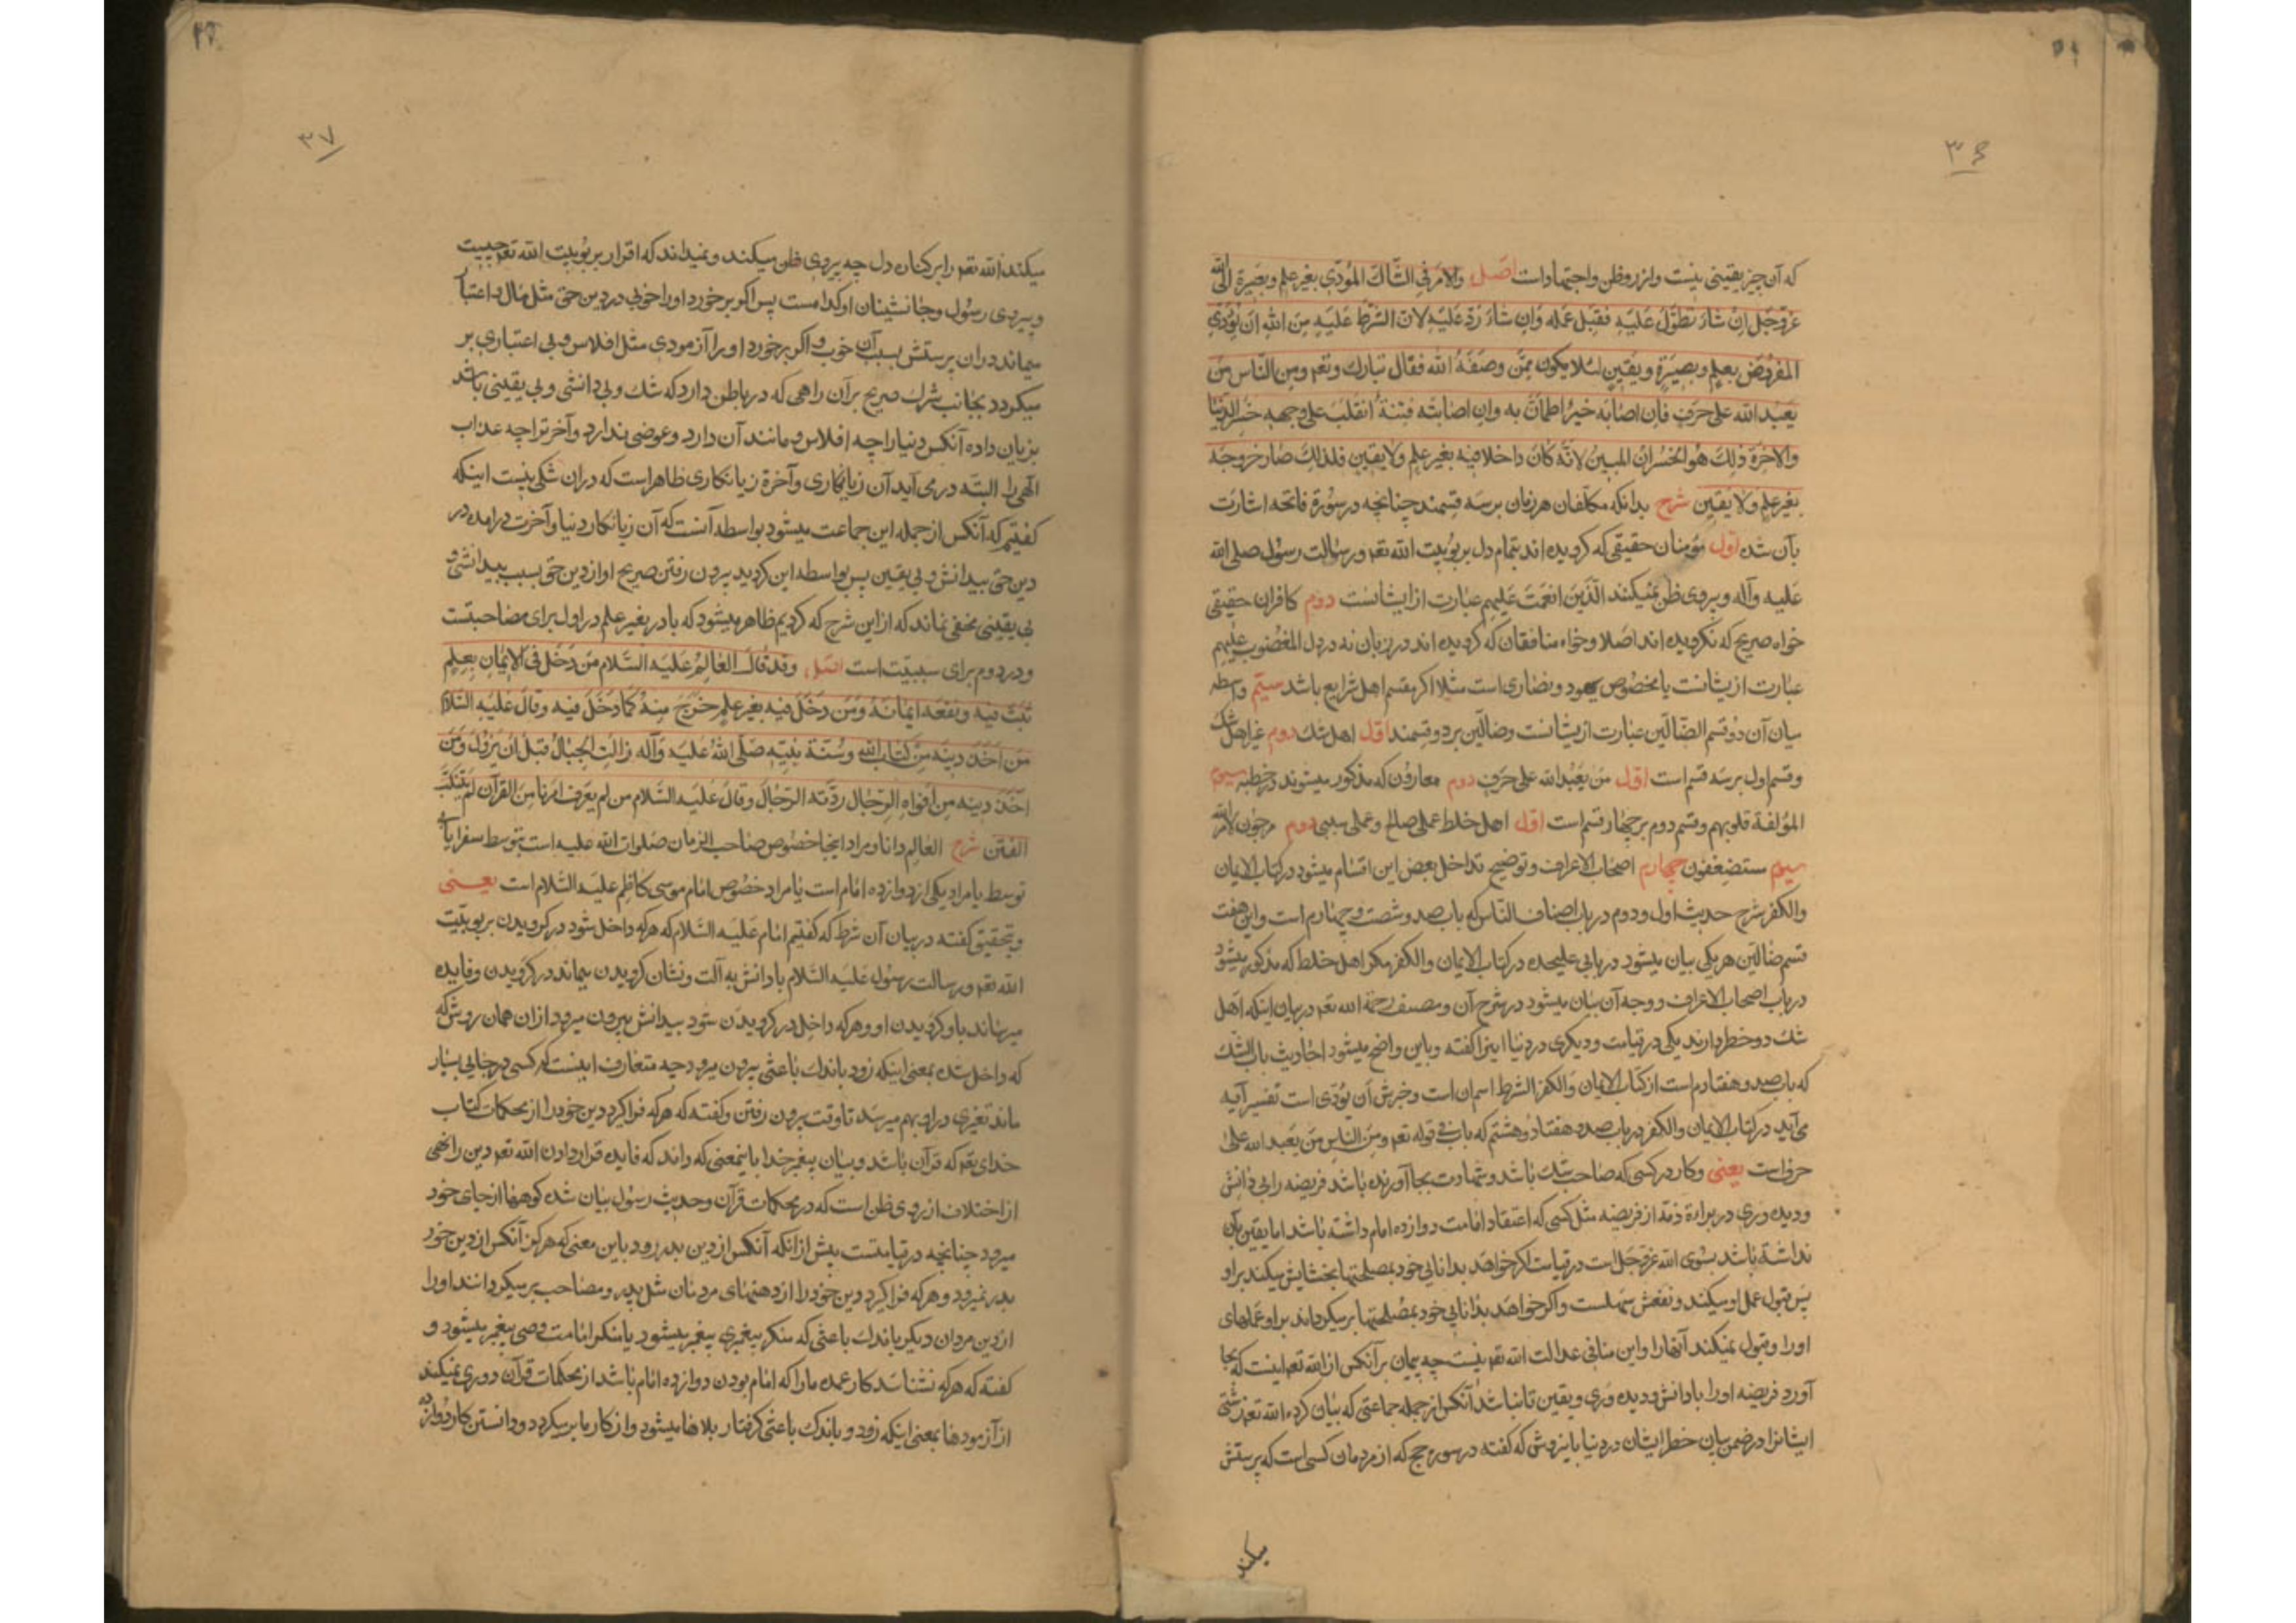 ۳۶
که آن چیز یقینی نیست و از رو ظن و اجتهادات اصل والامر فی الشاک المؤدی بغیر علم وبصیرة الی الله
عزوجل ان شاء تطول علیه فقبل عمله وان شاء رد علیه لان الشرط علیه من الله ان یؤدی
المفروض بعلم وبصیرة ویقین لئلا یکون ممن وصفه الله فقال تبارک وتعم ومن الناس من
یعبد الله علی حرف فان اصابه خیر اطمان به وان اصابته فتنة انقلب علی وجهه خسر الدنیا
والاخرة ذلک هو الخسران المبین لانه کان داخلا فیه بغیر علم ولا یقین فلذلک صار خروجه
بغیر علم ولا یقین شرح بدانکه مکلفان هر زمان بر سه قسمند چنانچه در سورة فاتحه اشارت
بآن شده اول مؤمنان حقیقی که کرویده اند بتمام دل بربوبیت الله تعم ورسالت رسول صلی الله
علیه وآله وپیروی ظن نمیکنند الذین انعمت علیهم عبارت از ایشانست دوم کافران حقیقی
خواه صریح که نکرویده اند اصلا وخواه منافقان که کرویده اند در زبان نه در دل المغضوب علیهم
عبارت ازیشانست یا مخصوص یهود ونصاری است مثلا اکر مقسم اهل شرایع باشد سیم واسطه
میان آن دو قسم الضالین عبارت ازیشانست وضالین بر دو قسمند اول اهل شک دوم غیر اهل شک
وقسم اول بر سه قسم است اول من یعبد الله علی حرف دوم معارون که مذکور میشوند در خطبه سیم
المؤلفة قلوبهم وقسم دوم بر چهار قسم است اول اهل خلط عملی صالح وعملی سیئ دوم مرجون لامر الله
سیم مستضعفون چهارم اصحاب الاعراف وتوضیح تداخل بعض این اقسام میشود در کتاب الایمان
والکفر شرح حدیث اول ودوم در باب اصناف الناس که باب صد وشصت وچهارم است واین هفت
قسم ضالین هر یکی بیان میشود در بابی علیحده در کتاب الایمان والکفر مکر اهل خلط که مذکور میشود
در باب اصحاب الاعراف ووجه آن بیان میشود در شرح آن ومصنف رحمة الله تعم در بیان اینکه اهل
شک دو خطر دارند یکی در قیامت ودیکری در دنیا اینرا کفته وباین واضح میشود احادیث باب الشک
که باب صد وهفتادم است از کتاب الایمان والکفر الشرط اسم ان است وخبرش ان یؤدی است تفسیر آیه
می آید در کتاب الایمان والکفر در باب صد وهفتاد وهشتم که باب فی قوله تعم ومن الناس من یعبد الله علی
حرف است یعنی وکار در کسی که صاحب شک باشد وشهادت بجا آورنده باشد فریضه را بی دانش
ودیده وری در براءة ذمه از فریضه مثل کسی که اعتقاد امامت دوازده امام داشته باشد اما یقین بآن
نداشته باشد بسوی الله عزوجل است در قیامت اکر خواهد بدانایی خود بمصلحتها بخشایش میکند بر او
پس قبول عمل او میکند ونفعش سهلست واکر خواهد بدانایی خود بمصلحتها بر میکرداند بر او عملهای
اورا وقبول نمیکند آنهارا واین منافی عدالت الله تعم نیست چه پیمان بر آنکس از الله تعم اینست که بجا
آورد فریضه اورا با دانش ودیده وری ویقین تا نباشد آنکس از جمله جماعتی که بیان کرده الله تعم زشتی
ایشانرا در ضمن بیان خطر ایشان در دنیا باینروش که کفته در سوره حج که از مردمان کسی است که پرستش
میکند
۳۷
میکند الله تعم را بر کنار دل چه پیروی ظن میکند ونمیداند که اقرار بربوبیت الله تعم چیست
وپیروی رسول وجانشینان او کدامست پس اکر برخورد اورا خوبی در دین حق مثل مال واعتبار
میماند در آن پرستش بسبب آن خوب واکر برخورد اورا آزمودی مثل افلاس وبی اعتباری بر
میکردد بجانب شرک صریح بر آن راهی که در باطن دارد که شک وبی دانشی وبی یقینی باشد
بزیان داده آنکس دنیا را چه افلاس ومانند آن دارد وعوضی ندارد وآخرترا چه عذاب
الهی را البته در می آید آن زیانکاری وآخرة زیانکاری ظاهر است که در آن شکی نیست اینکه
کفتیم که آنکس از جمله این جماعت میشود بواسطه آنست که آن زیانکار دنیا وآخرت درآمده در
دین حق بیدانش وبی یقین پس بواسطه این کردید بیرون رفتن صریح او از دین حق بسبب بیدانشی و
بی یقینی مخفی نماند که از این شرح که کردیم ظاهر میشود که با در بغیر علم در اول برای مصاحبتست
ودر دوم برای سببیت است اصل وقد قال العالم علیه السلام من دخل فی الایمان بعلم
ثبت فیه ونفعه ایمانه ومن دخل فیه بغیر علم خرج منه کما دخل فیه وقال علیه السلام
من اخذ دینه من کتاب الله وسنة نبیه صلی الله علیه وآله زالت الجبال قبل ان یزول ومن
اخذ دینه من افواه الرجال ردته الرجال وقال علیه السلام من لم یعرف امرنا من القرآن لم یتنکب
الفتن شرح العالم دانا ومراد اینجا خصوص صاحب الزمان صلوات الله علیه است بتوسط سفرا یا بی
توسط یا مراد یکی از دوازده امام است یا مراد خصوص امام موسی کاظم علیه السلام است یعنی
وبتحقیق کفته در بیان آن شرط که کفتیم امام علیه السلام که هرکه داخل شود در کرویدن بربوبیت
الله تعم ورسالت رسول علیه السلام با دانش به آلت ونشان کرویدن میماند در کرویدن وفایده
میرساند باو کرویدن او وهرکه داخل در کرویدن شود بیدانش بیرون میرود از آن همان روش که
که داخل شده بمعنی اینکه زود باندک باعثی بیرون میرود چه متعارف اینست که کسی در جایی بسیار
ماند تغیری در او بهم میرسد تا وقت بیرون رفتن وکفته که هرکه فرا کرد دین خود را از محکمات کتاب
خدای تعم که قرآن باشد وبیان پیغمبر خدا باینمعنی که داند که فایده قرار دادن الله تعم دین را نهی
از اختلاف از روی ظن است که در محکمات قرآن وحدیث رسول بیان شده کوهها از جای خود
میرود چنانچه در قیامتست پیش از آنکه آنکس از دین بدر رود باین معنی که هرکز آنکس از دین خود
بدر نمیرود وهرکه فرا کرد دین خود را از دهنهای مردمان مثل پدر ومصاحب بر میکردانند اورا
از دین مردان دیکر باندک باعثی که منکر پیغمبری پیغمبر میشود یا منکر امامت وصی پیغمبر میشود و
کفته که هرکه نشناسد کار عمده ما را که امام بودن دوازده امام باشد از محکمات قرآن دوری نمیکند
از آزمودها بمعنی اینکه زود وباندک باعثی کرفتار بلاها میشود واز کار ما بر میکردد ودانستن کار دوازده